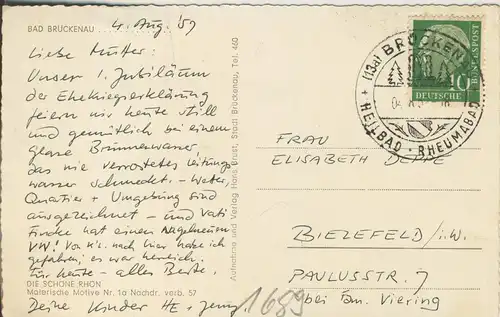 BAD BRÜCKENAU
4. Aug. '57
Liebe Mutter:
Unser 1. Jubiläum
der Ehekriegerklärung
feiern wir heute still
und gemütlich bei einem
Glase Brunnenwasser
das wie verrostetes Leitungs
wasser schmeckt. – Wetter,
Quartier + Umgebung sind
ausgezeichnet – und Vati
Finke hat einen Nagelneuen
VW! Von K's. nach hier habe ich
gefahren; es war herrlich.
Für heute – alles Beste.
DIE SCHÖNE RHÖN
Malerische Motive Nr. 1a Nachdr. verb. 57
Deine Kinder HE +
Aufnahme und Verlag Hans Stadt Brückenau, Tel. 460
(13a) BRÜCKEN
HEILBAD · RHEUMABAD
10
DEUTSCHE BUNDESPOST
FRAU
ELISABETH
BIELEFELD/i.W.
PAULUSSTR. 7
bei Fam. Viering
1689